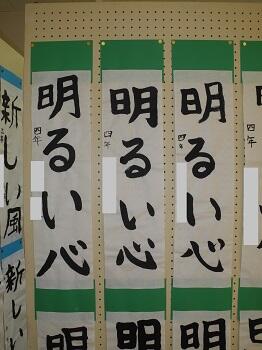 明るい心
四年
明るい心
四年
明るい心
四年
新しい風
新しい
明
明
明